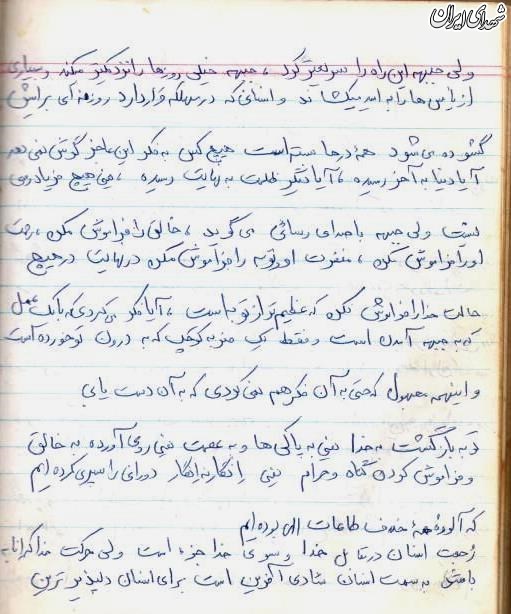 شهدای ایران
ولی جبهه این راه را سریعتر کرد، جبهه خیلی روزها را نزدیکتر میکند و بسیاری
از یأس ها را به امید میکشاند و انسانی که در مهلکه قرار دارد روزنه ای برایش
گشوده می شود همه درها بسته است هیچ کس به فکر این عاجز گوش نمی دهد
آیا دنیا به آخر رسیده، آیا دیگر ظلمت به نهایت رسیده، هیچ فریادرسی
نیست ولی جبهه با صدای رسائی می گوید، خالق را فراموش مکن، رحمت
او را فراموش نکن، مغفرت او و توبه را فراموش مکن در نهایت در هیچ
حالت خدا را فراموش نکن که عظیم تر از تو بداست، آیا فکر می کردی که با یک عمل
که به جبهه آمدن است و فقط یک ضربه کوچک که به درون تو خورده است
و اینهمه مجهول که حتی به آن فکر هم نمی کردی که به آن دست یابی
و به بازگشت به خدا یعنی به پاکی ها و به عصمت یعنی روی آورده به خالق
و فراموش کردن گناه و حرام یعنی انگار نه انگار دورای را سپری کرده ایم
که آلوده همه خلاف طاعات الهی بوده ایم
زحمت انسان در مقابل خدا و سوی خدا جزء است ولی حرکت خدا گرانمایه
به سمت انسان شادی آفرین است برای انسان دلپذیرترین